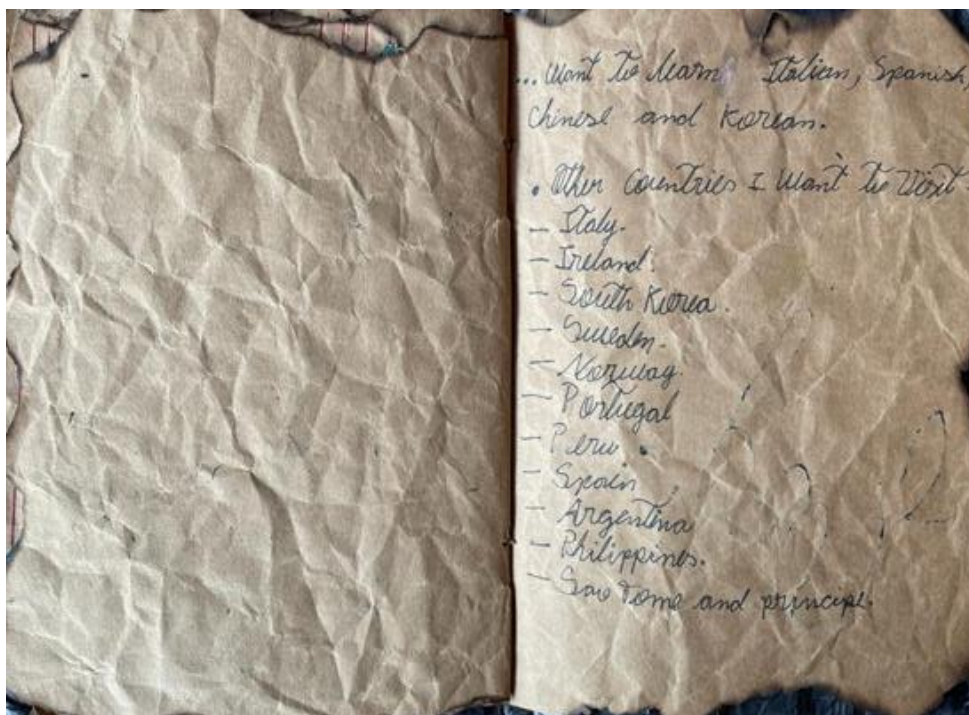 ... Want To learn Italian, Spanish,
Chinese and Korean.
. Other Countries I Want to Visit
- Italy.
- Ireland.
- South Korea.
- Sweden.
- Norway.
- Portugal
- Peru.
- Spain
- Argentina
- Philippines.
- Sao Tome and principe.